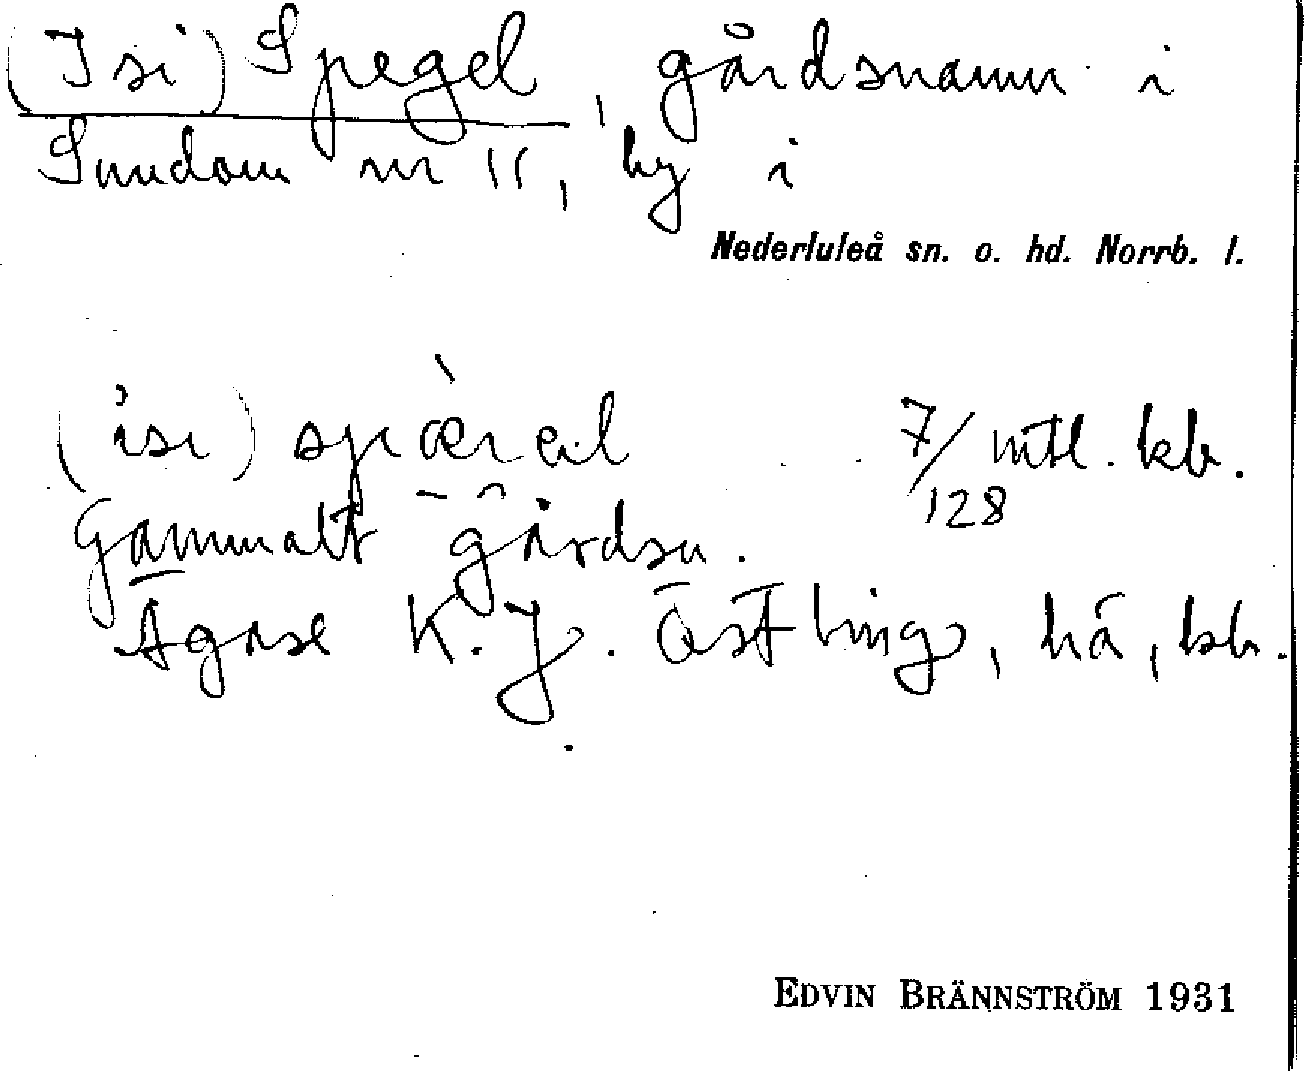 (Isi) Spegel, gårdsnamn i
Sundom nr 11, by i
Nederluleå sn. o. hd. Norrb. l.
(isi) 7/128 mtl. kb.
Gammalt gårdsn.
Ägare K. J. Östling, hä, kb.
EDVIN BRÄNNSTRÖM 1931